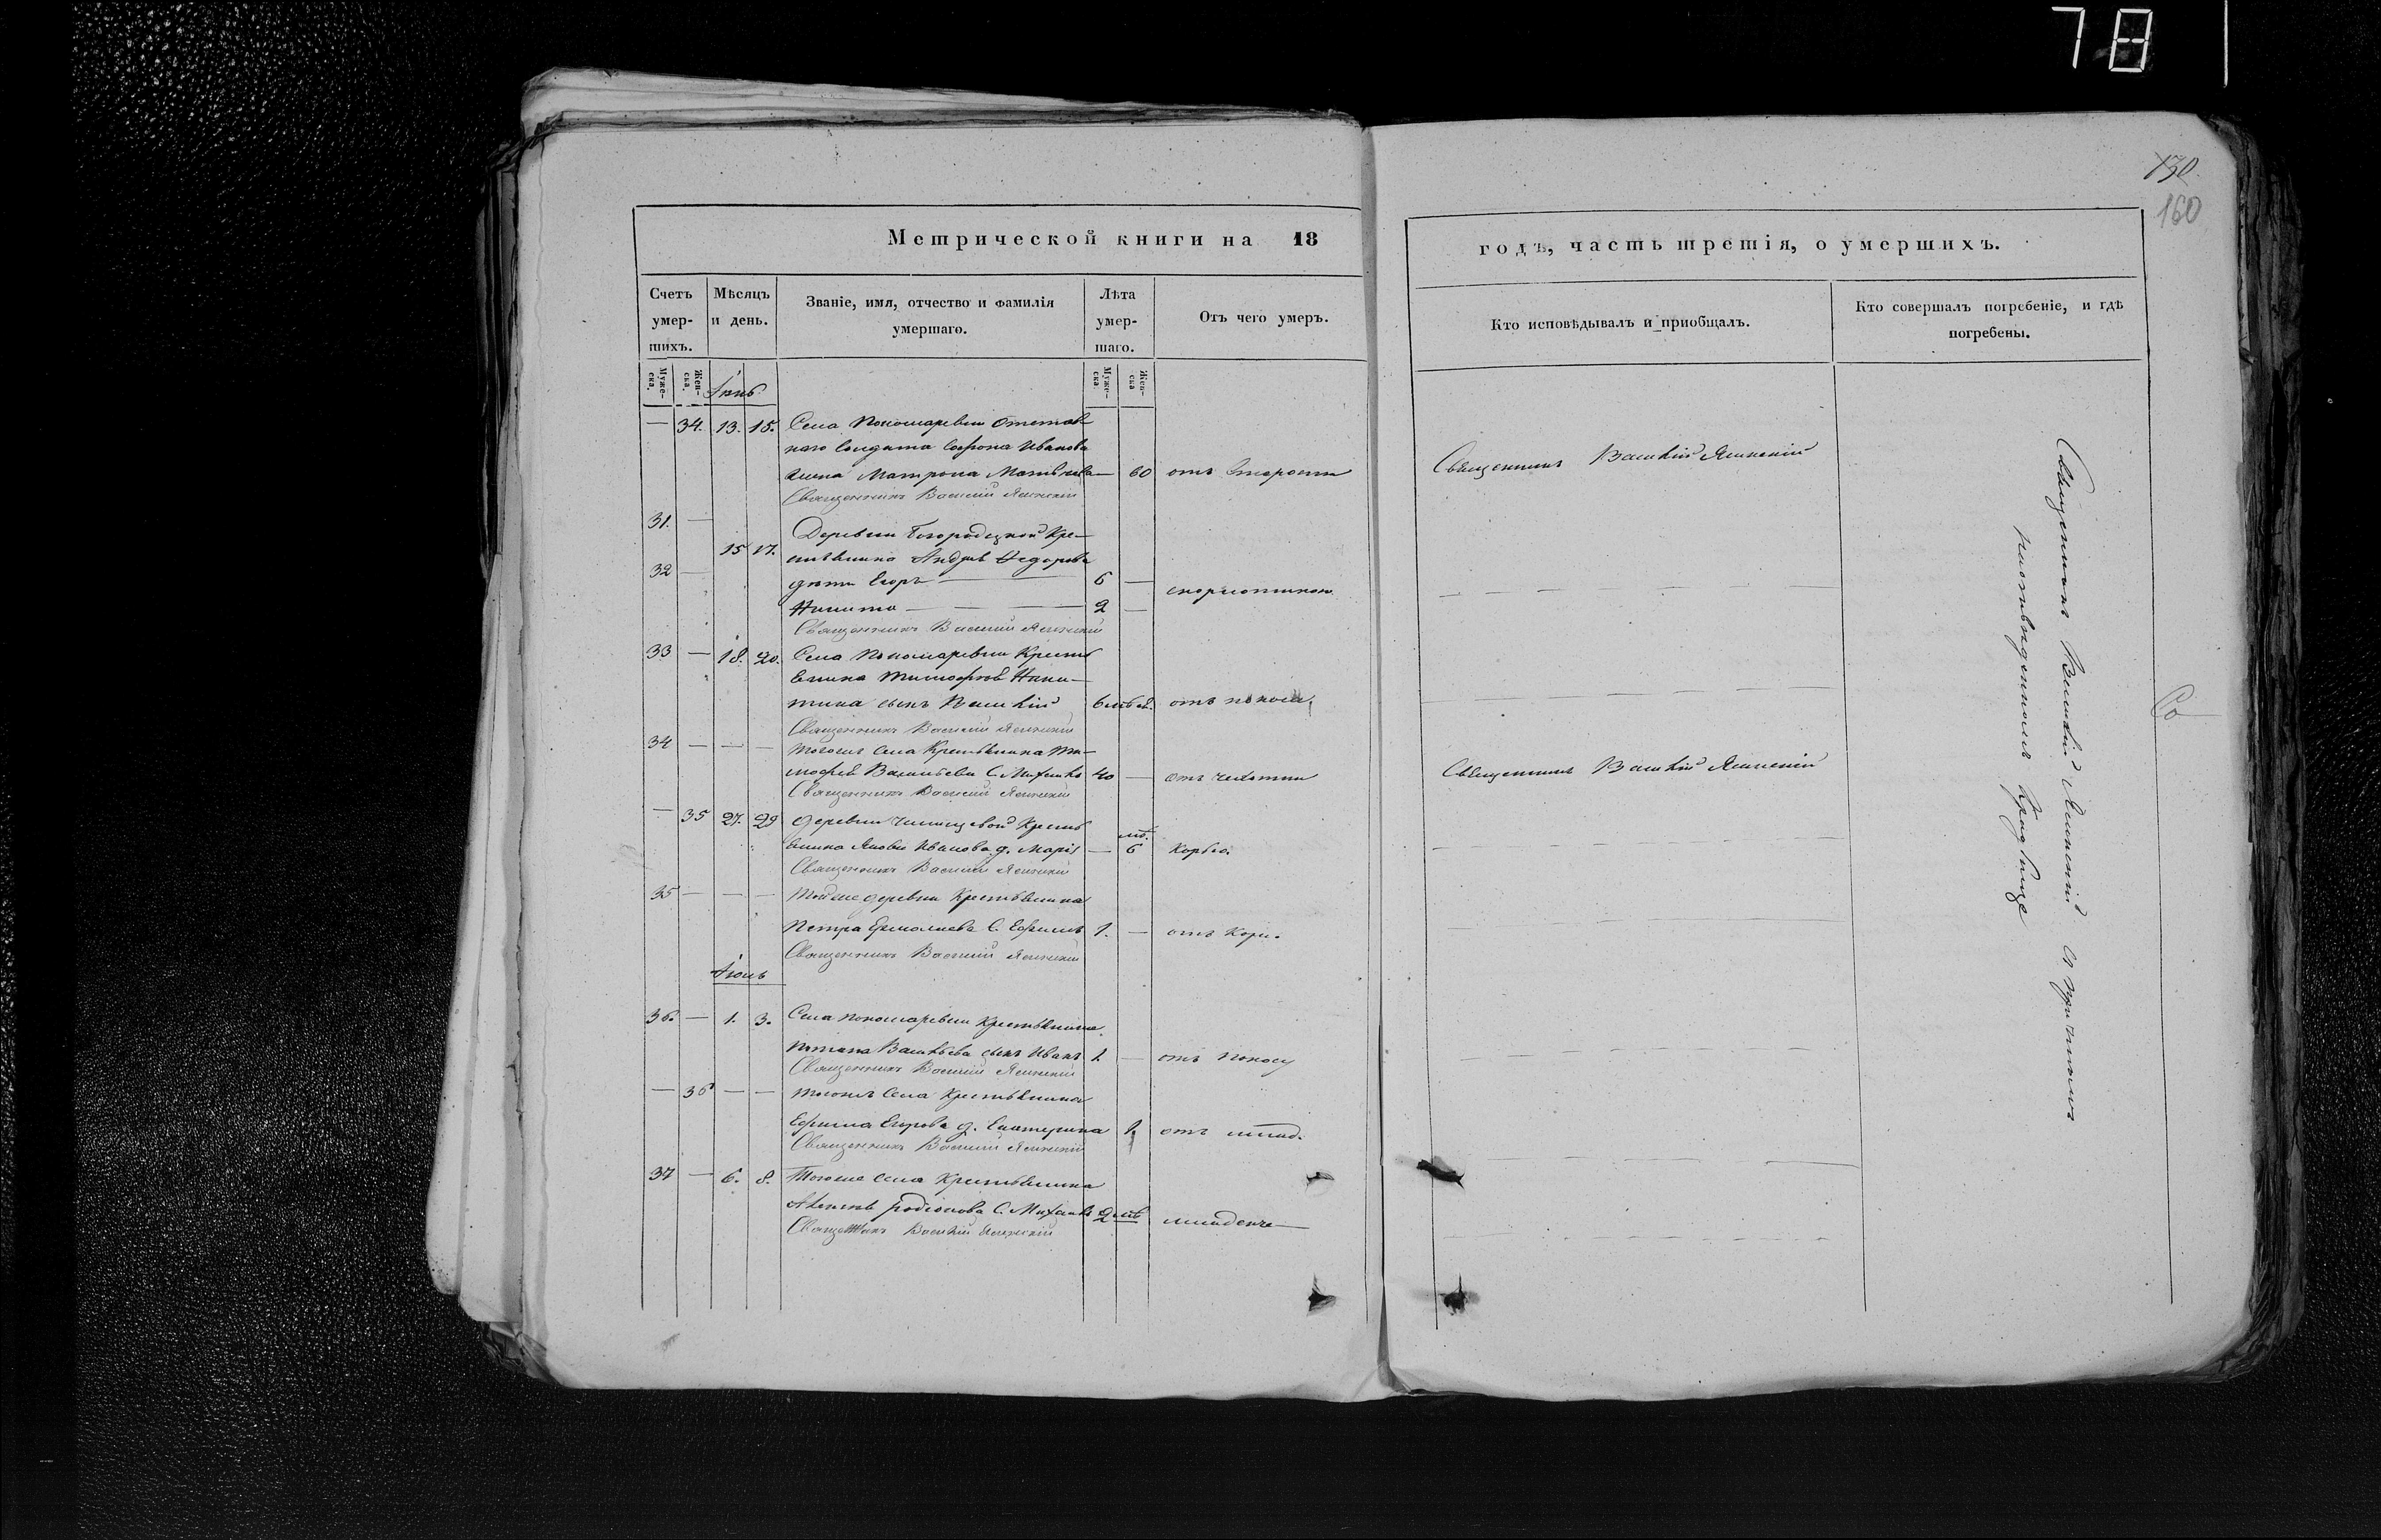 78
130
160
Метрической книги на 18
годъ, часть третія, о умершихъ.
Счетъ умершихъ.
Мѣсяцъ и день.
Званіе, имя, отчество и фамилія умершаго.
Лѣта умершаго.
Отъ чего умеръ.
Кто исповѣдывалъ и приобщалъ.
Кто совершалъ погребеніе, и гдѣ погребены.
Муже-ска.
Жен-ска.
Муже-ска.
Жен-ска
Іюнь
— 34. 13. 15. Села Пономаревки Отстав
наго Солдата Софрона Иванова
жена Матрона Матвѣева — 60 отъ Старости
Священникъ Василій Ясинскій
Священникъ Василій Ясинскій
31. —
Деревни Богородицкой Кре-
15 17.
стьянина Андрея Ѳедорова
32 —
дѣти Егоръ — 6 —
Никита — 2 —
Священникъ Василій Ясинскій
33 — 18. 20. Села Пономаревки Кресть
янина Тимофея Ники-
тина сынъ Василій 6 отъ поноса
Священникъ Василій Ясинскій
34 — — — Тогоже Села Крестьянина Ти-
мофея Васильева С. Михаилъ 40 — отъ чахотки
Священникъ Василій Ясинскій
Священникъ Василій Ясинскій
— 35 27. 29 деревни Кресть
янина Якова Иванова д. Марія — 6 Корью
Священникъ Василій Ясинскій
35 — — — Тойже деревни Крестьянина
Петра Ермолаева С. Ефимъ 1. — отъ Кори.
Священникъ Василій Ясинскій
Іюль
36. — 1. 3. Села Пономаревки Крестьянина
Потапа Васильева сынъ Иванъ 1 — отъ Поносу
Священникъ Василій Ясинскій
— 36 — — Тогоже Села Крестьянина
Ефима Егорова д. Екатерина 1 отъ млад.
Священникъ Василій Ясинскій
37 — 6. 8. Тогоже Села Крестьянина
Родіонова С. Михаилъ 2 младенче
Священникъ Василій Ясинскій
Священникъ Василій Ясинскій съ причтомъ
Со